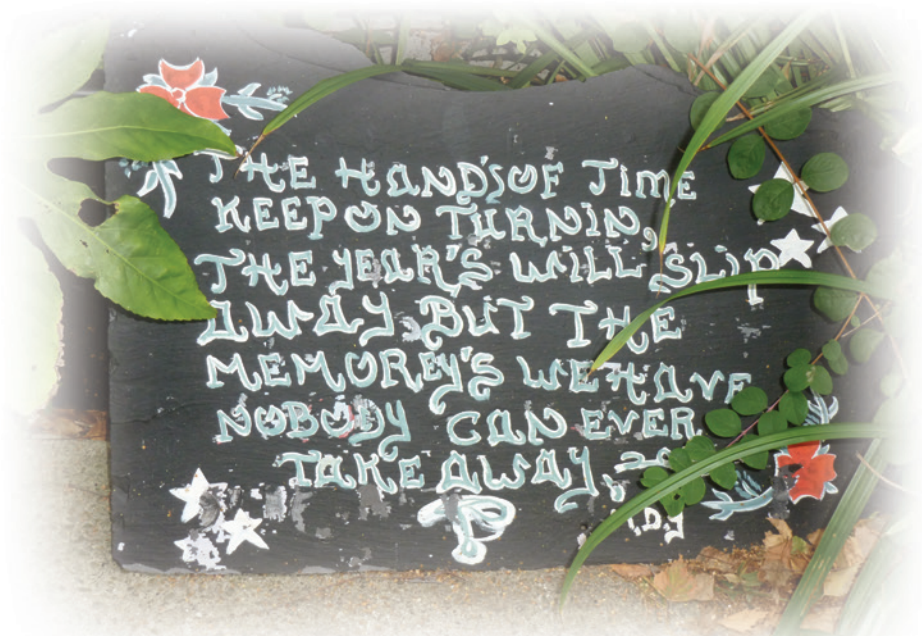 THE HAND'S OF TIME
KEEP ON TURNIN,
THE YEAR'S WILL SLIP
AWAY BUT THE
MEMOREY'S WE HAVE
NOBODY CAN EVER
TAKE AWAY,